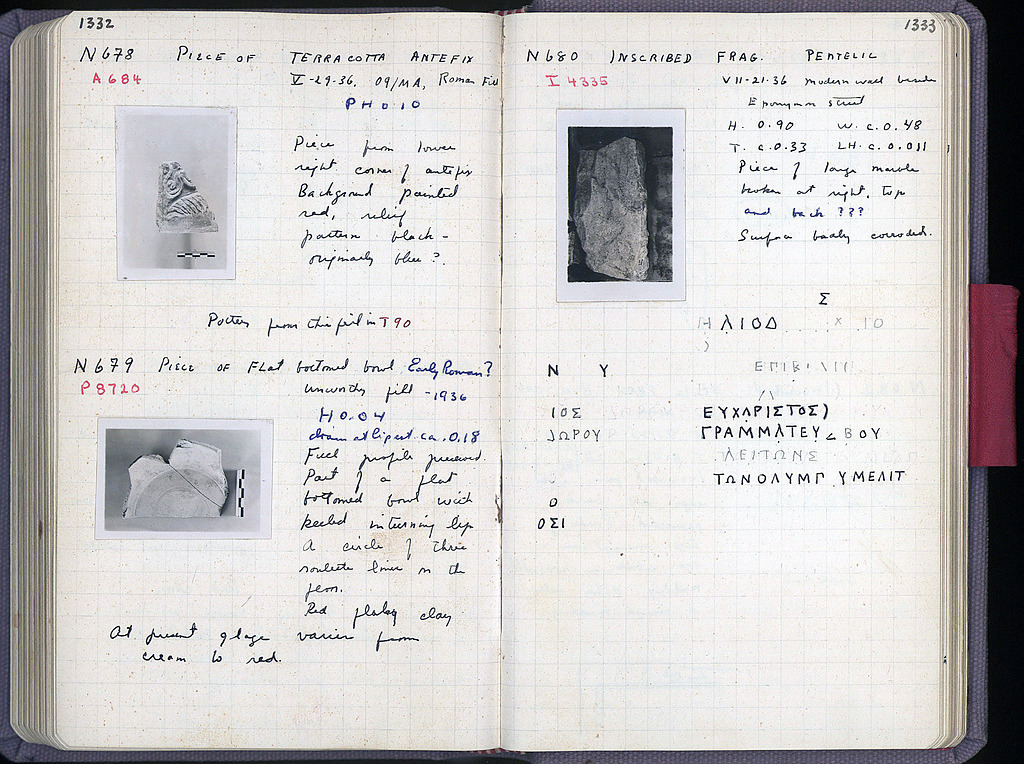 1332
N678 PIECE OF TERRACOTTA ANTEFIX
A 684 V-29-36, 09/MA, Roman Fill
PH 0.10
Piece from lower
right corner of antefix
Background painted
red, relief
pattern black -
originally blue?.
Pottery from this fill in T 90
N679 PIECE OF FLAT bottomed bowl Early Roman?
P 8720 unworthy fill - 1936
H 0.04
diam at lip est. ca. 0.18
Full profile preserved.
Part of a flat
bottomed bowl with
keeled inturning lip
A circle of three
roulette lines on the
floor.
Red flaky clay
At present glaze varies from
cream to red.
1333
N680 INSCRIBED FRAG. PENTELIC
I 4335 VII-21-36 modern wall beside
Eponymon street
H. 0.90 W. c. 0.48
T. c. 0.33 LH. c. 0.011
Piece of large marble
broken at right, top
and back ???
Surface badly corroded.
Σ
ΗΛΙΟΔ Χ ΙΟ
Ν Υ
ΙΟΣ ΕΥΧΑΡΙΣΤΟΣ)
ΩΡΟΥ ΓΡΑΜΜΑΤΕΥ ΒΟΥ
ΛΕΙΤΩΝΣ
ΤΩΝΟΛΥΜΠ ΥΜΕΛΙΤ
Ο
ΟΣΙ